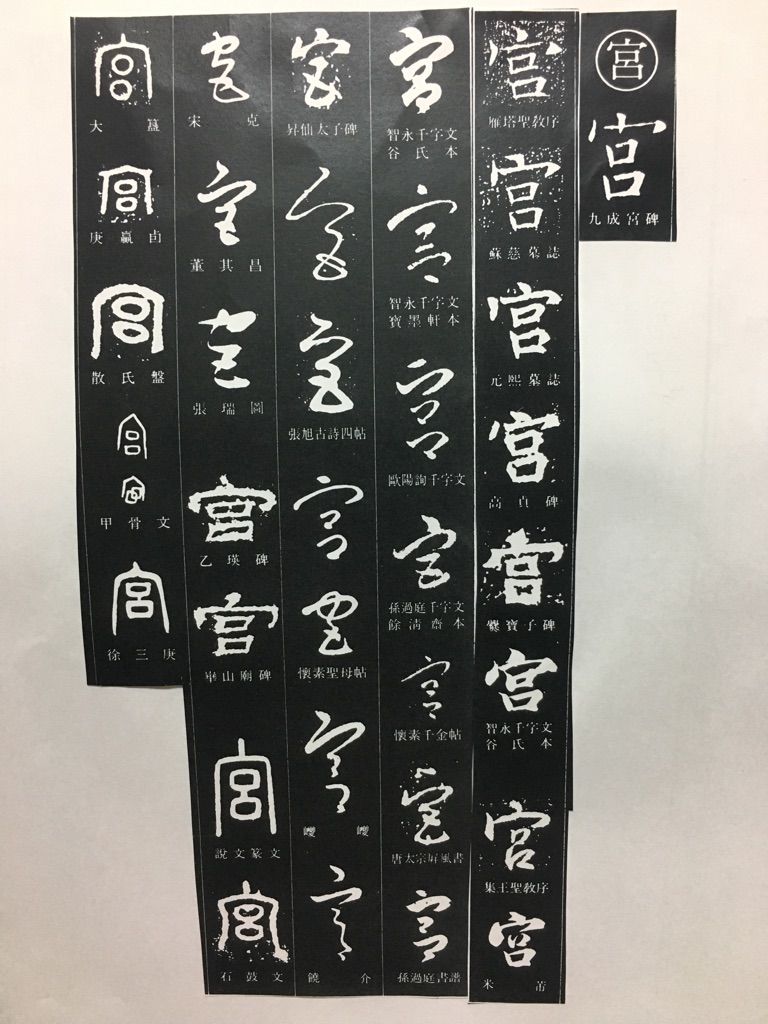 宮
宮
九成宮碑
宮
雁塔聖教序
宮
蘇慈墓誌
宮
元熙墓誌
宮
高貞碑
宮
爨寶子碑
宮
智永千字文
谷氏本
宮
集王聖教序
宮
米芾
宮
智永千字文
谷氏本
宮
智永千字文
寶墨軒本
宮
歐陽詢千字文
宮
孫過庭千字文
餘清齋本
宮
懷素千金帖
宮
唐太宗屏風書
宮
孫過庭書譜
宮
昇仙太子碑
宮
宮
張旭古詩四帖
宮
宮
懷素聖母帖
宮
巙巙
宮
饒介
宮
宋克
宮
董其昌
宮
張瑞圖
宮
乙瑛碑
宮
華山廟碑
宮
說文篆文
宮
石鼓文
宮
大簋
宮
庚嬴卣
宮
散氏盤
宮
宮
甲骨文
宮
徐三庚